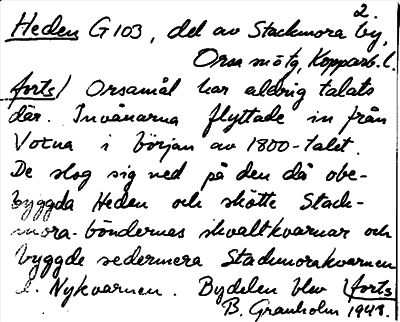 2.
Heden G 103, del av Stackmora by,
Orsa sn o tg, Kopparb. l.
forts/ Orsamål har aldrig talats
där. Invånarna flyttade in från
Votna i början av 1800-talet.
De slog sig ned på den då obe-
byggda Heden och skötte Stack-
mora-böndernas skvaltkvarnar och
byggde sedermera Stackmorakvarnen
l. Nykvarnen. Bydelen blev /forts
B. Granholm 1948.